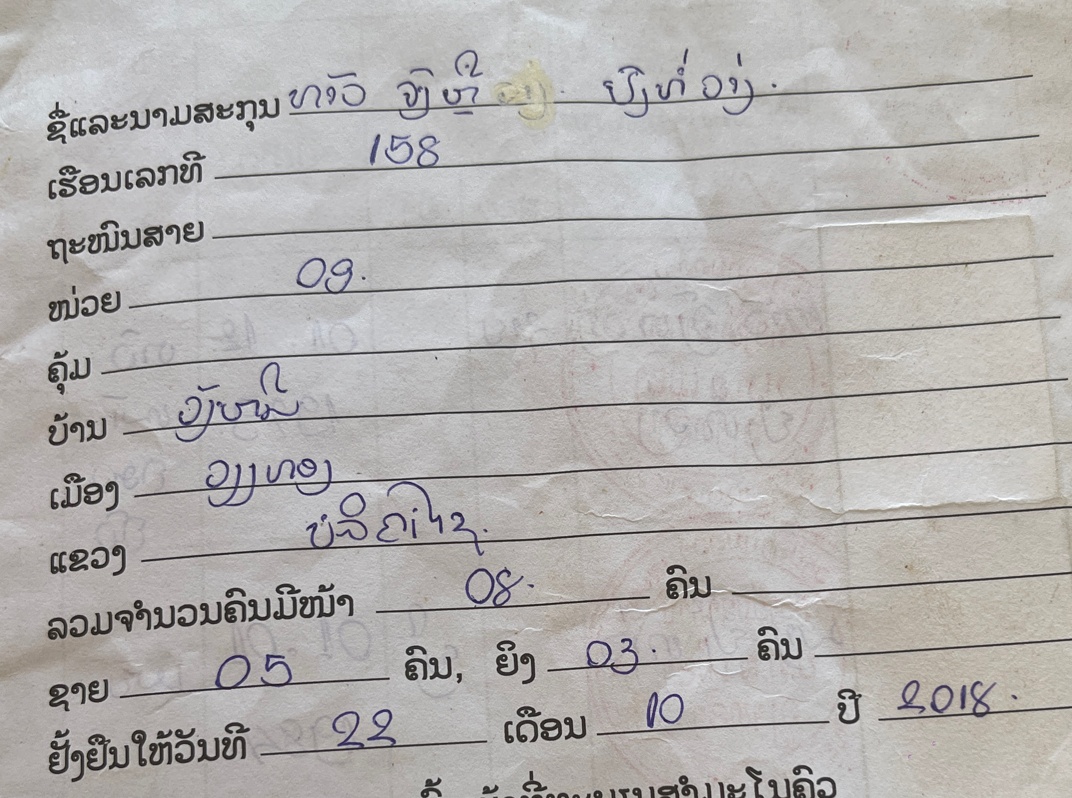 ຊື່ແລະນາມສະກຸນ ທາວ
ເຮືອນເລກທີ 158
ຖະໜົນສາຍ
ໜ່ວຍ 09.
ຄຸ້ມ
ບ້ານ
ເມືອງ ວຽງທອງ
ແຂວງ ບໍລິຄຳໄຊ.
ລວມຈຳນວນຄົນມີໜ້າ 08. ຄົນ
ຊາຍ 05 ຄົນ, ຍິງ 03. ຄົນ
ຢັ້ງຢືນໃຫ້ວັນທີ 22 ເດືອນ 10 ປີ 2018.